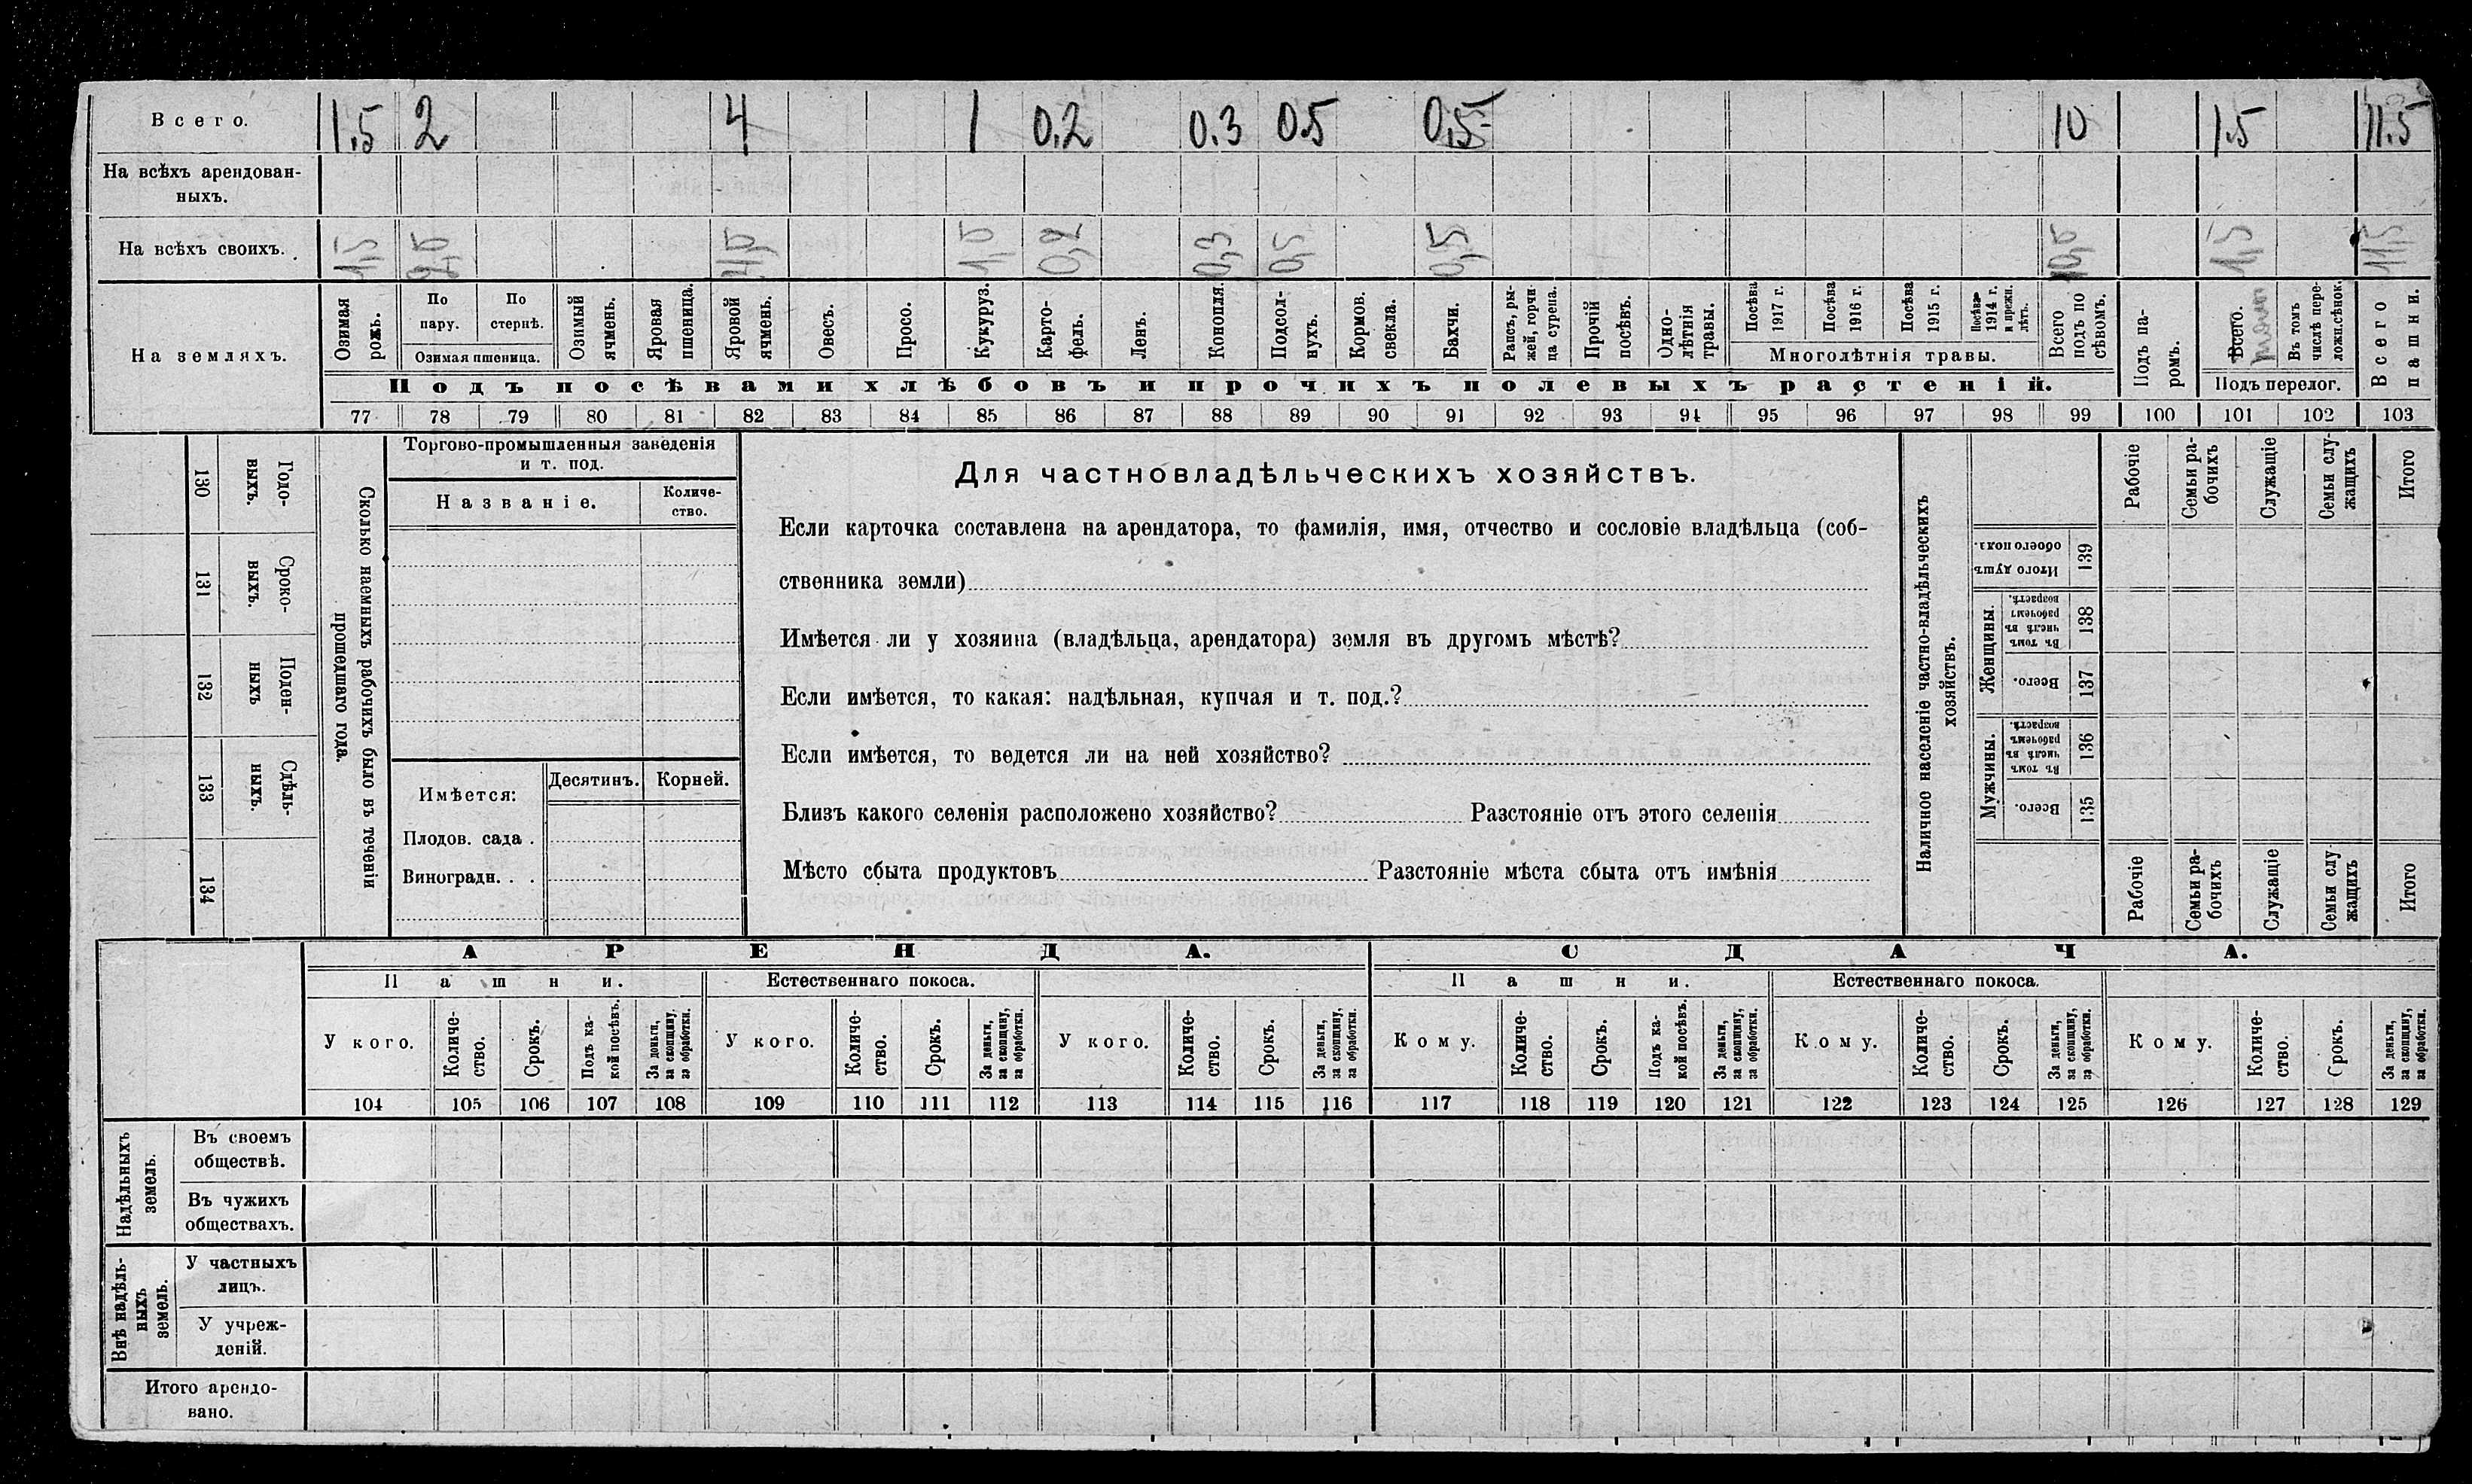 Всего. 1.5 2 4 1 0.2 0.3 0.5 0.5 10 1.5 11.5
На всѣхъ арендован-
ныхъ.
На всѣхъ своихъ. 1,5 0,2 0,3 0,5 0,5 1,5 11,5
На земляхъ.
Озимая рожь.
По пару.
По стернѣ.
Озимая пшеница.
Озимый ячмень.
Яровая пшеница.
Яровой ячмень.
Овесъ.
Просо.
Кукуруз.
Карто-
фель.
Ленъ.
Конопля.
Подсол-
нухъ.
Кормов. свекла.
Бахчи.
Рапсъ, ры-
жей, горчи-
ца сурепа.
Прочій посѣвъ.
Одно-
лѣтнія травы.
Посѣва 1917 г.
Посѣва 1916 г.
Посѣва 1915 г.
Посѣва 1914 г. и прежн. лѣтъ.
Многолѣтнія травы.
Всего подъ по
сѣвомъ.
Подъ па-
ромъ.
Всего.
Въ томъ числѣ пере-
ложн. сѣнок.
Подъ перелог.
Всего пашни.
Подъ посѣвами хлѣбовъ и прочихъ полевыхъ растеній.
77 78 79 80 81 82 83 84 85 86 87 88 89 90 91 92 93 94 95 96 97 98 99 100 101 102 103
130 Годо-
выхъ.
131 Сроко-
выхъ.
132 Поден-
ныхъ
133 Сдѣль-
ныхъ.
134
Сколько наемныхъ рабочихъ было въ теченіи
прошедшаго года.
Торгово-промышленныя заведенія
и т. под.
Названіе.
Количе-
ство.
Имѣется:
Десятинъ. Корней.
Плодов. сада .
Виноградн. . .
Для частновладѣльческихъ хозяйствъ.
Если карточка составлена на арендатора, то фамилія, имя, отчество и сословіе владѣльца (соб-
ственника земли)
Имѣется ли у хозяина (владѣльца, арендатора) земля въ другомъ мѣстѣ?
Если имѣется, то какая: надѣльная, купчая и т. под.?
Если имѣется, то ведется ли на ней хозяйство?
Близъ какого селенія расположено хозяйство? Разстояніе отъ этого селенія
Мѣсто сбыта продуктовъ Разстояніе мѣста сбыта отъ имѣнія
Наличное населеніе частно-владѣльческихъ
хозяйствъ.
Рабочіе
Семьи ра-
бочихъ
Служащіе
Семьи слу-
жащихъ
Итого
Итого душъ
обоего пола.
139
Женщины.
Въ томъ числѣ въ рабочемъ возрастѣ.
138
Всего.
137
Мужчины.
Въ томъ числѣ въ рабочемъ возрастѣ.
136
Всего.
135
Рабочіе
Семьи ра-
бочихъ
Служащіе
Семьи слу
жащихъ
Итого
АРЕНДА. СДАЧА.
Пашни. Естественнаго покоса. Пашни. Естественнаго покоса.
У кого.
Количе-
ство.
Срокъ.
Подъ ка-
кой посѣвъ.
За деньги,
за скопщину,
за обработки.
У кого.
Количе-
ство.
Срокъ.
За деньги,
за скопщину,
за обработки.
У кого.
Количе-
ство.
Срокъ.
За деньги,
за скопщину,
за обработки.
Кому.
Количе-
ство.
Срокъ.
Подъ ка-
кой посѣвъ.
За деньги,
за скопщину,
за обработки.
Кому.
Количе-
ство.
Срокъ.
За деньги,
за скопщину,
за обработки.
Кому.
Количе-
ство.
Срокъ.
За деньги,
за скопщину,
за обработки.
104 105 106 107 108 109 110 111 112 113 114 115 116 117 118 119 120 121 122 123 124 125 126 127 128 129
Надѣльныхъ
земель.
Въ своемъ
обществѣ.
Въ чужихъ
обществахъ.
Внѣ надѣль-
ныхъ
земель.
У частныхъ
лицъ.
У учреж-
деній.
Итого арендо-
вано.